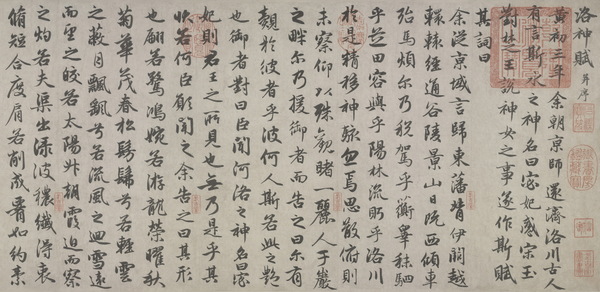 洛神賦 并序
黃初三年余朝京師還濟洛川古人
有言斯水之神名曰宓妃感宋玉
對楚王說神女之事遂作斯賦
其詞曰
余從京城言歸東藩背伊闕越
轘轅經通谷陵景山日既西傾車
殆馬煩爾乃稅駕乎蘅皋秣駟
乎芝田容與乎陽林流眄乎洛川
於是精移神駭忽焉思散俯則
未察仰以殊觀睹一麗人于巖
之畔爾乃援御者而告之曰爾有
覿於彼者乎彼何人斯若此之豔
也御者對曰臣聞河洛之神名曰宓
妃則君王之所見也無乃是乎其
狀若何臣願聞之余告之曰其形
也翩若驚鴻婉若游龍榮曜秋
菊華茂春松髣髴兮若輕雲
之蔽月飄颻兮若流風之迴雪遠
而望之皎若太陽升朝霞迫而察
之灼若夫渠出淥波穠纖得衷
脩短合度肩若削成腰如約素